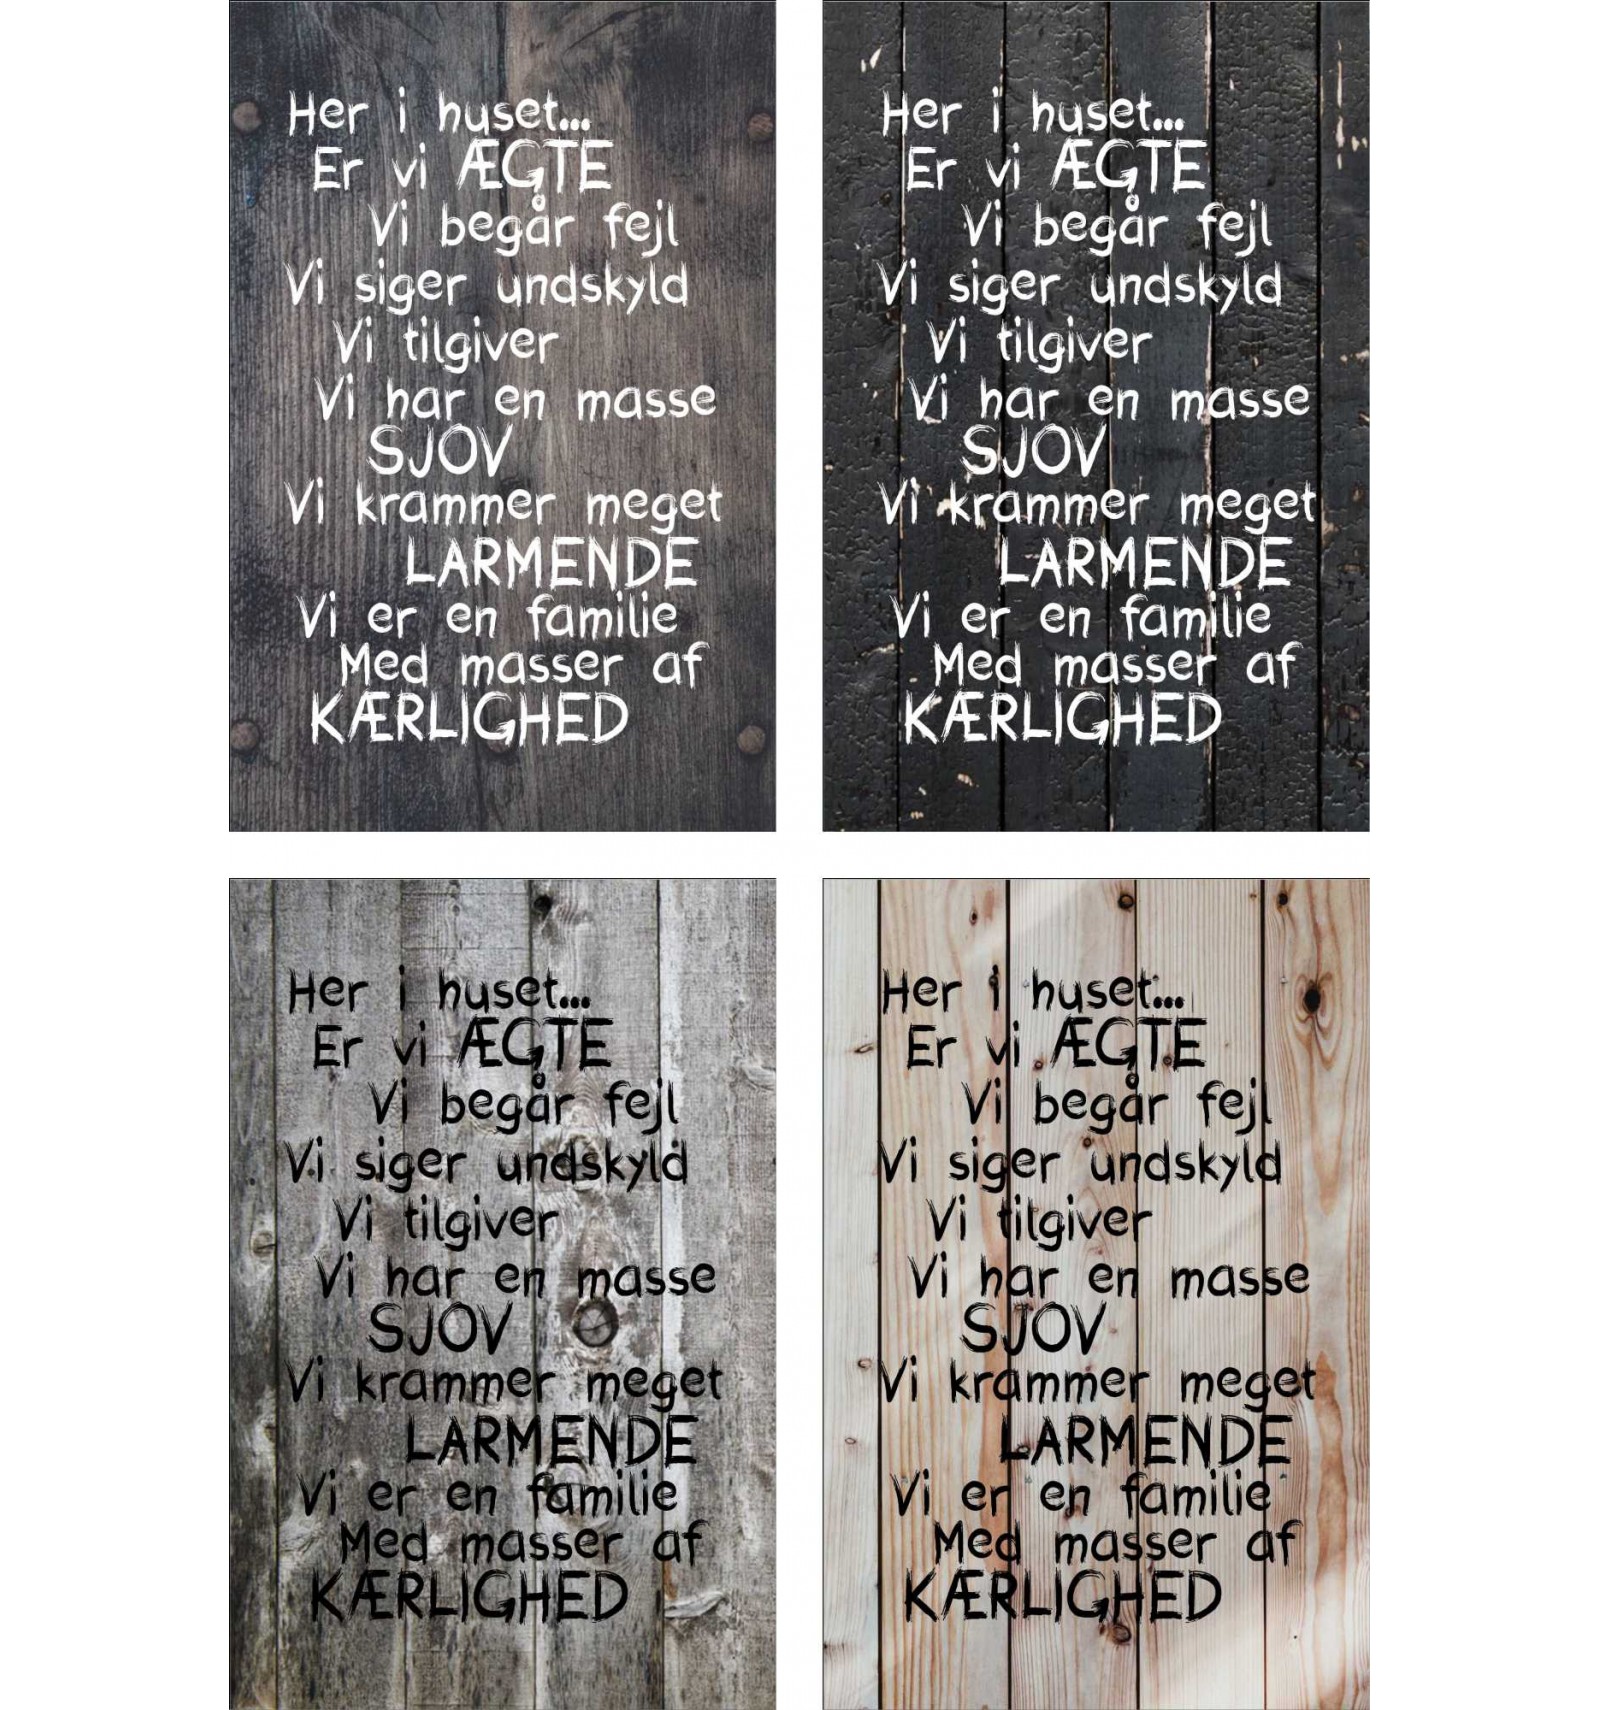 Her i huset...
Er vi ÆGTE
Vi begår fejl
Vi siger undskyld
Vi tilgiver
Vi har en masse
SJOV
Vi krammer meget
LARMENDE
Vi er en familie
Med masser af
KÆRLIGHED
Her i huset...
Er vi ÆGTE
Vi begår fejl
Vi siger undskyld
Vi tilgiver
Vi har en masse
SJOV
Vi krammer meget
LARMENDE
Vi er en familie
Med masser af
KÆRLIGHED
Her i huset...
Er vi ÆGTE
Vi begår fejl
Vi siger undskyld
Vi tilgiver
Vi har en masse
SJOV
Vi krammer meget
LARMENDE
Vi er en familie
Med masser af
KÆRLIGHED
Her i huset...
Er vi ÆGTE
Vi begår fejl
Vi siger undskyld
Vi tilgiver
Vi har en masse
SJOV
Vi krammer meget
LARMENDE
Vi er en familie
Med masser af
KÆRLIGHED